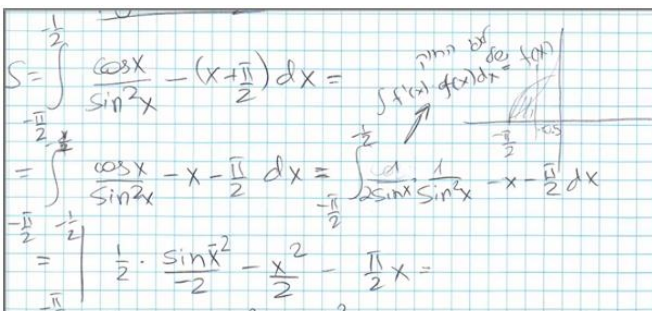 S = ∫_{-π/2}^{-1/2} cosx/sin²x - (x+π/2) dx =
∫f'(x)·f(x)dx = f(x)
-π/2 -0.5
= ∫_{-π/2}^{-1/2} cosx/sin²x - x - π/2 dx = ∫_{-π/2}^{-1/2} /2sinx · 1/sin²x - x - π/2 dx
= |_{-π/2}^{-1/2} 1/2 · sinx^{-2}/-2 - x²/2 - π/2 x =